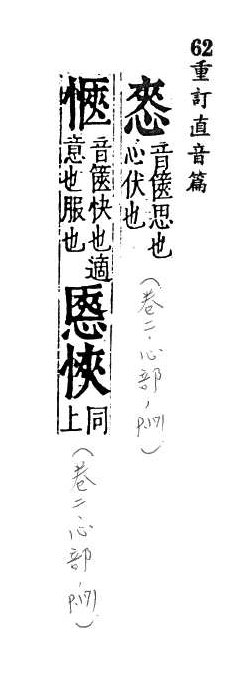 62重訂直音篇
音篋思也
心伏也
(卷二、心部，p.171)
愜
音篋快也適
意也服也
㥦悏
同上
(卷二、心部，p.171)